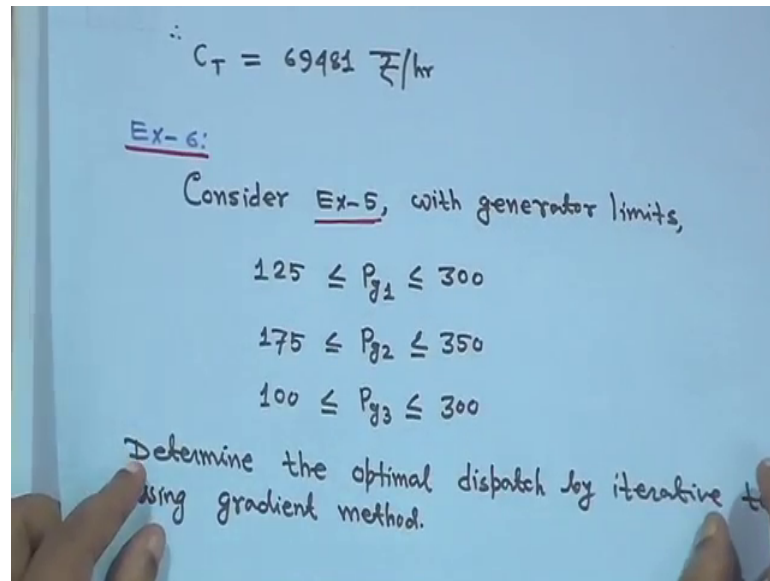 ∴
C_T = 69481 ₹/hr
Ex-6:
Consider Ex-5, with generator limits,
125 ≤ P_g1 ≤ 300
175 ≤ P_g2 ≤ 350
100 ≤ P_g3 ≤ 300
Determine the optimal dispatch by iterative
using gradient method.